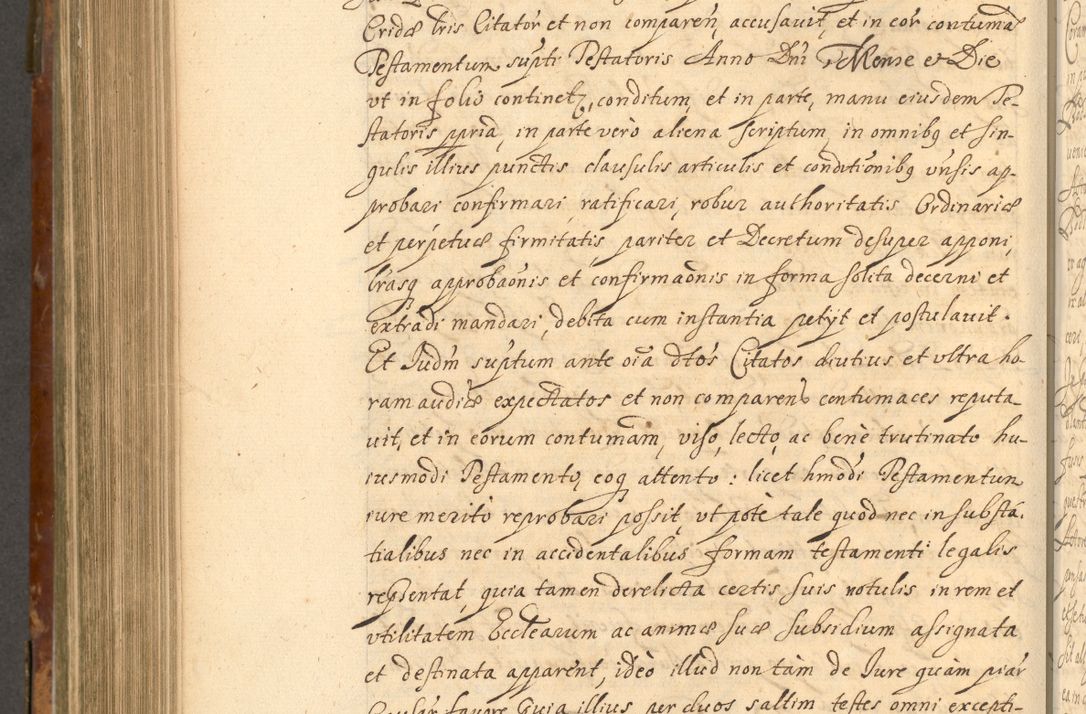 Cridæ lris Citator et non comparen, accusavit, et in eor contuma
Testamentum supti Testatoris Anno Dni Mense et Die
vt in folis continetz, conditum, et in parte, manu eiusdem Te-
statoris ppria, in parte verò aliena scriptum, in omnibq et sin-
gulis illius punctis clausulis articulis et conditionibq vnsis ap-
probari confirmari, ratificari, robur authoritatis Ordinariæ
et perpetuæ firmitatis, pariter et Decretum desuper apponi,
lrasq approbaõnis et confirmaõnis in forma solita decerni et
extradi mandari, debita cum instantia petijt et postulavit.
Et Iudm suptum ante oĩa dtos Citatos diutius et vltra ho
ram audiæ expectatos et non comparens contumaces reputa-
uit, et in eorum contumam, viso, lecto, ac benè trutinato hu-
iusmodi Testamento, eoq attento: licet hmodi Testamentum
iure meritò reprobari possit, vt potè tale quod nec in substã.
tialibus nec in accidentalibus formam testamenti legalis
repsentat, quia tamen derelicta certis suis notulis in rem et
vtilitatem Ecclearum ac animæ suæ subsidium assignata
et destinata apparent, ideò illud non tàm de Iure quàm piar
favore Quia illius per duos saltim testes omni excepti-